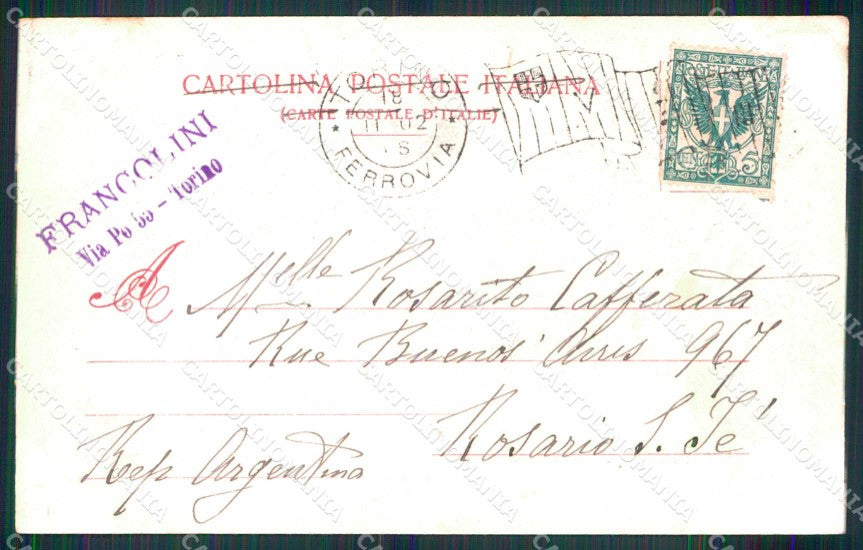 CARTOLINA POSTALE ITALIANA
(CARTE POSTALE D'ITALIE)
TORINO
18
11 02
FERROVIA
5
FRANCOLINI
Via Po - Torino
A Melle Rosarito Cafferata
Rue Buenos Aires 967
Rosario S. Fé
Rep Argentina
CARTOLINOMANIA